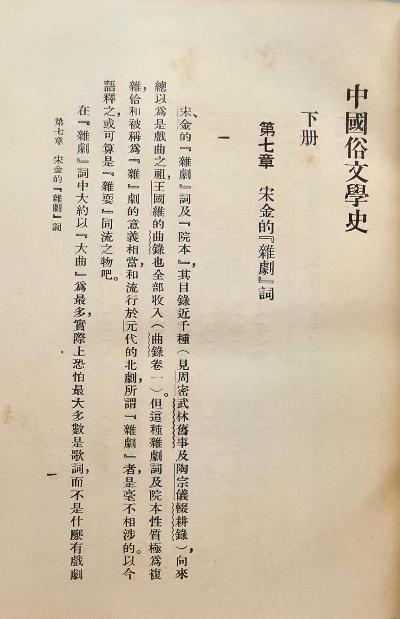 中國俗文學史
下册
第七章 宋金的『雜劇』詞
一
宋、金的『雜劇』詞及『院本』，其目錄近千種（見周密武林舊事及陶宗儀輟耕錄），向來
總以爲是戲曲之祖，王國維的曲錄也全部收入（曲錄卷一）。但這種雜劇詞及院本性質極爲複
雜恰和被稱爲『雜』劇的意義相當和流行於元代的北劇，所謂『雜劇』者，是毫不相涉的。以今
語釋之，或可算是『雜耍』同流之物吧。
在『雜劇』詞中大約以『大曲』爲最多，實際上恐怕最大多數是歌詞，而不是什麼有戲劇
第七章 宋金的『雜劇』詞
一